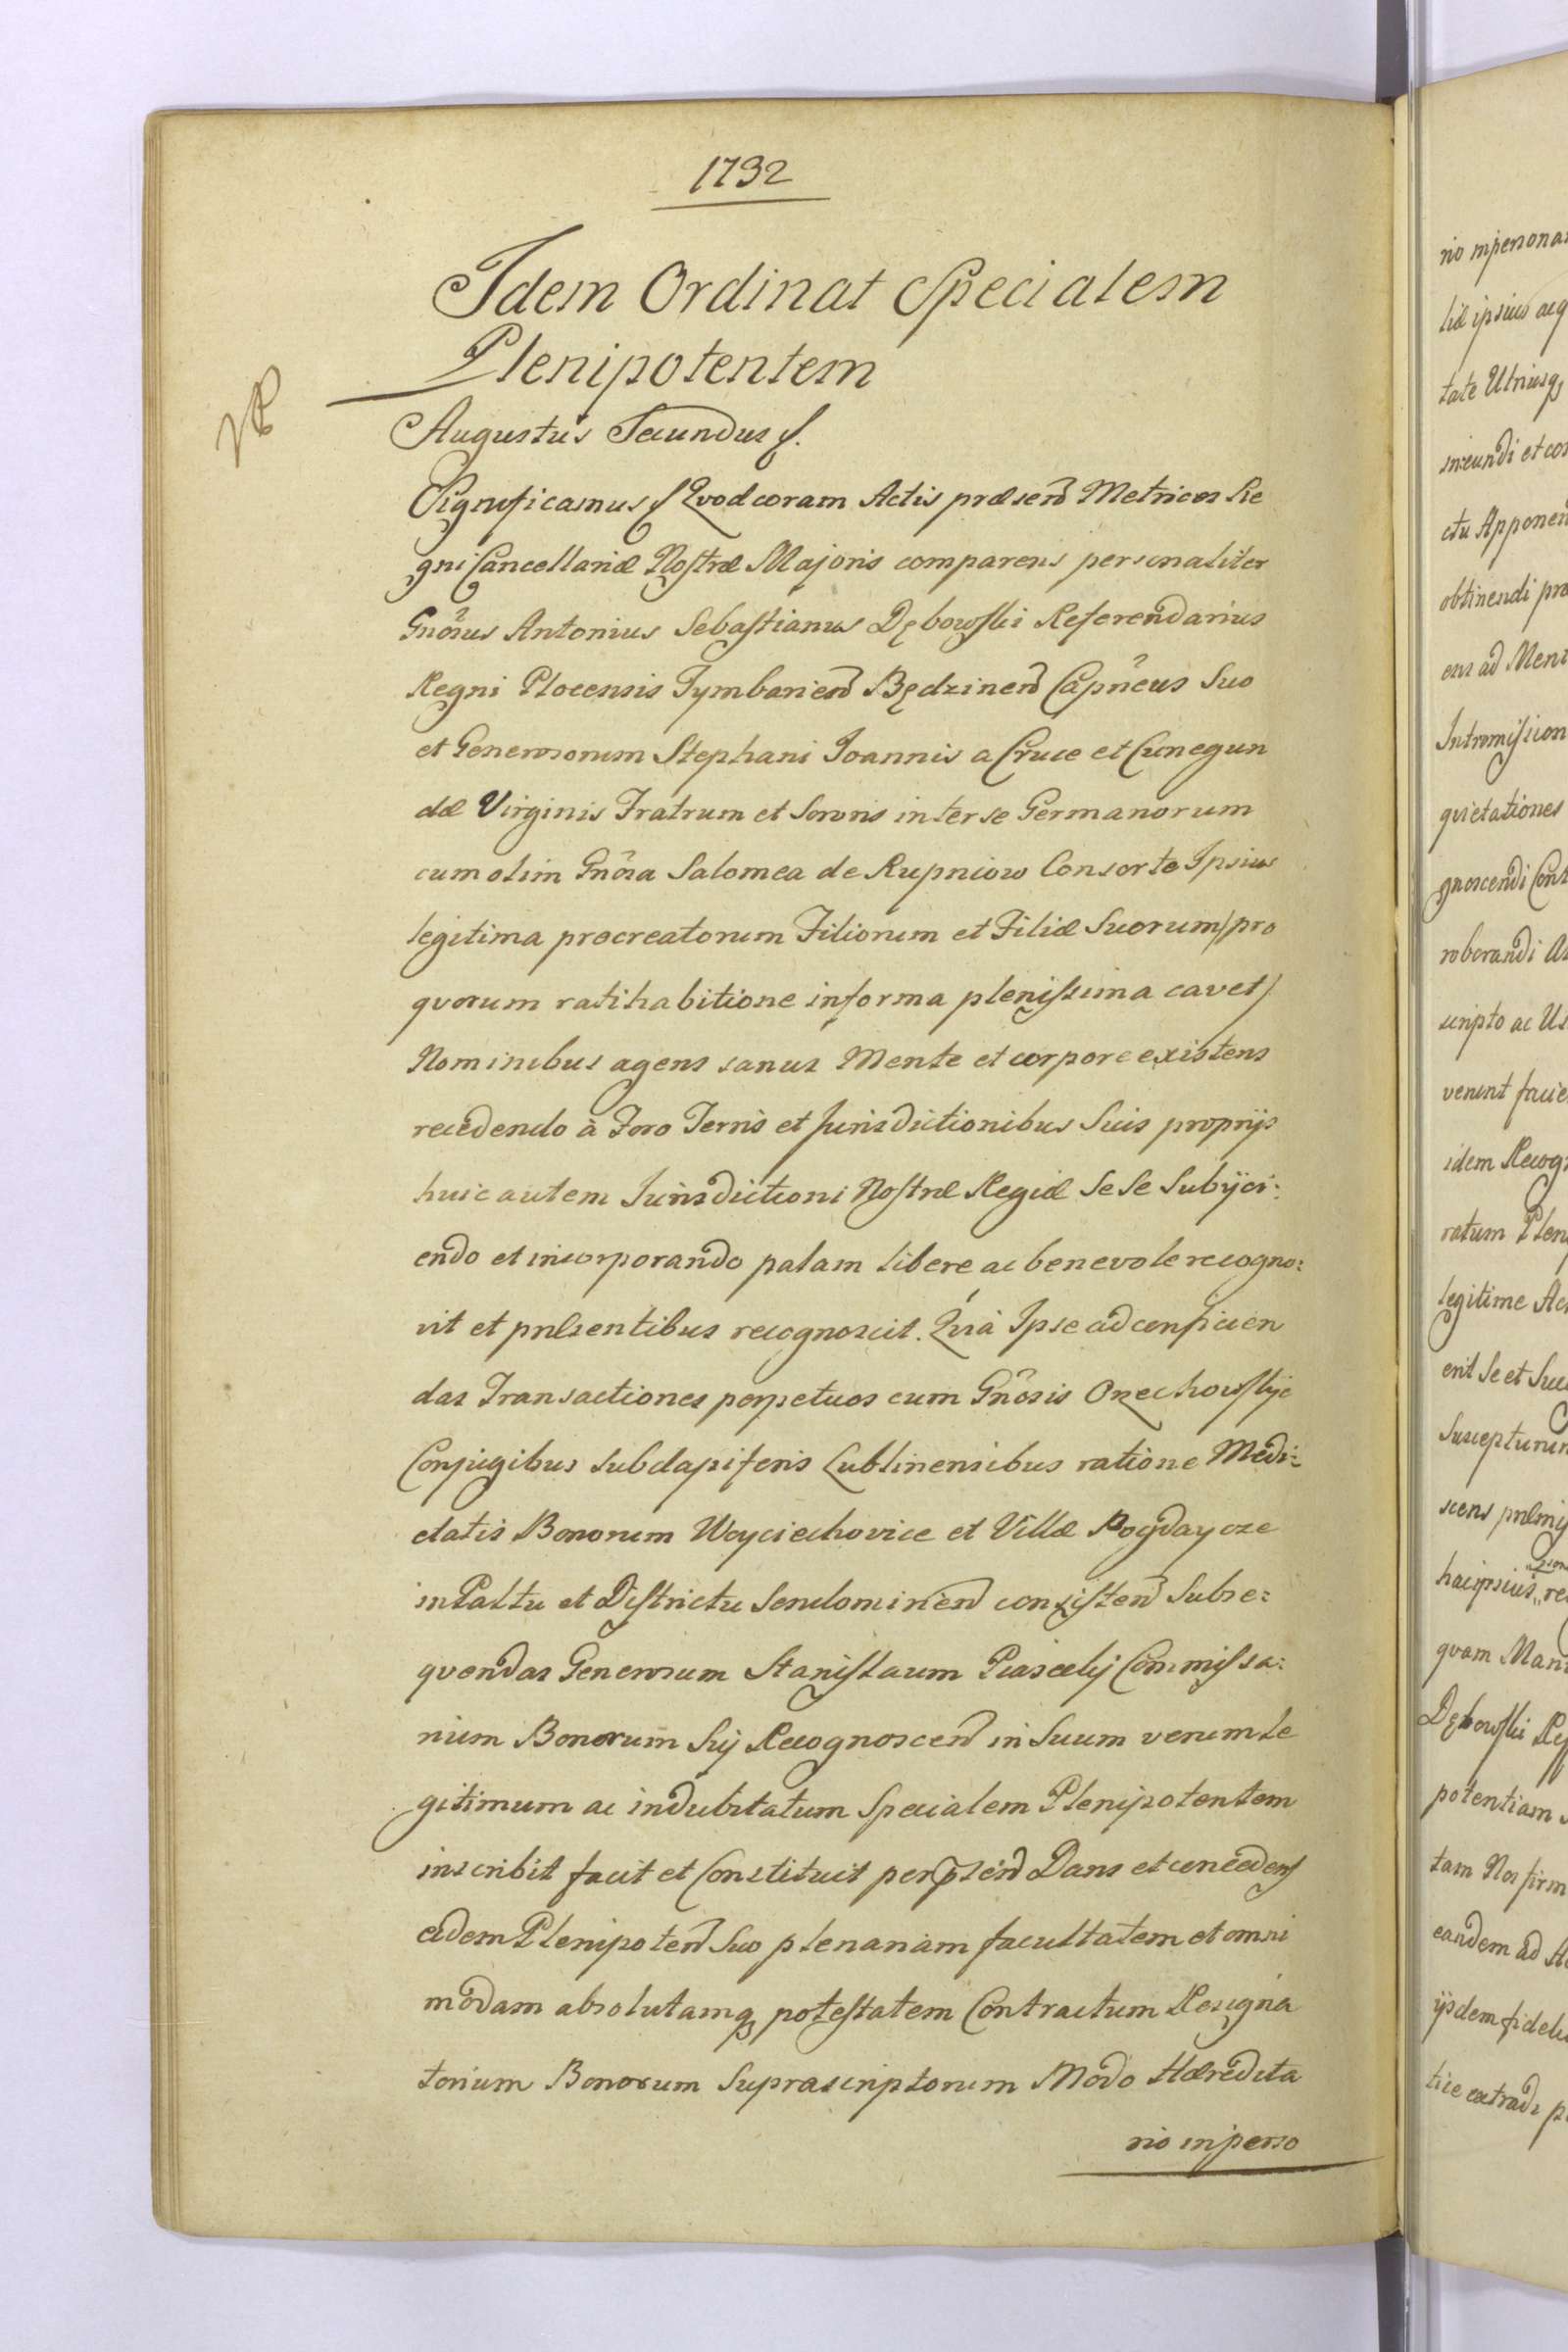 1732
Idem Ordinat Specialem
Plenipotentem
Augustus Secundus f.
Significamus f Qvod coram Actis præsend Metrices Re
gni Cancellariæ Nostræ Majoris comparens personaliter
Gnõsus Antonius Sebastianus Dębowski Referendarius
Regni Plocensis Tymbariend Będzinend Capñeus Suo
et Generosorum Stephani Joannis a Cruce et Cunegun
dæ Virginis Fratrum et Sororis inter se Germanorum
cum olim Gnõsa Salomea de Rupniow Consorte Ipsius
legitima procreatorum Filiorum et Filiæ Suorum /pro
qvorum ratihabitione informa plenissima cavet/
Nominibus agens sanus Mente et corpore existens
recedendo à Foro Terris et Jurisdictionibus Suis proprijs
huic autem Jurisdictioni Nostræ Regiæ Se Se Subijci:
endo et incorporando palam libere ac benevole recogno:
vit et pnlsentibus recognoscit. Qvià Ipse ad conficien
das Transactiones perpetuos cum Gnõsis Orzechowskije
Conjugibus subdapiferis Lublinensibus ratione Medi:
etatis Bonorum Woyciechovice et Villæ Pogdaycze
in Paltu et Districtu Sendomiriend consistend Subse:
qvendas Generosum Stanislaum Piascelij Commissa:
rium Bonorum Sui Recognoscend in Suum verum le
gitimum ac indubitatum Specialem Plenipotentem
inscribit facit et Constituit per pñsend Dans et concedens
eidem Plenipotend Suo plenariam facultatem et omni
modam absolutamq potestatem Contractum Resigna
torium Bonorum Suprascriptorum Modo Hæredita
rio in perso
rio in persona
liæ ipsius aeq
tate Utriusq
ineundi et con
ctu Apponen
obtinendi pro
ens ad Men
Intromission
qvietationes
gnoscendi Cont
roborandi
scripto ac
venint facie
idem Recog
ratum Plen
legitime Ac
erit Se et Suc
Suscepturum
scens pnlmis
hac ipsius re
qvam Man
Dębowski Ref
potentiam
tam Nos firm
eandem ad
ijsdem fideli
tice extradi